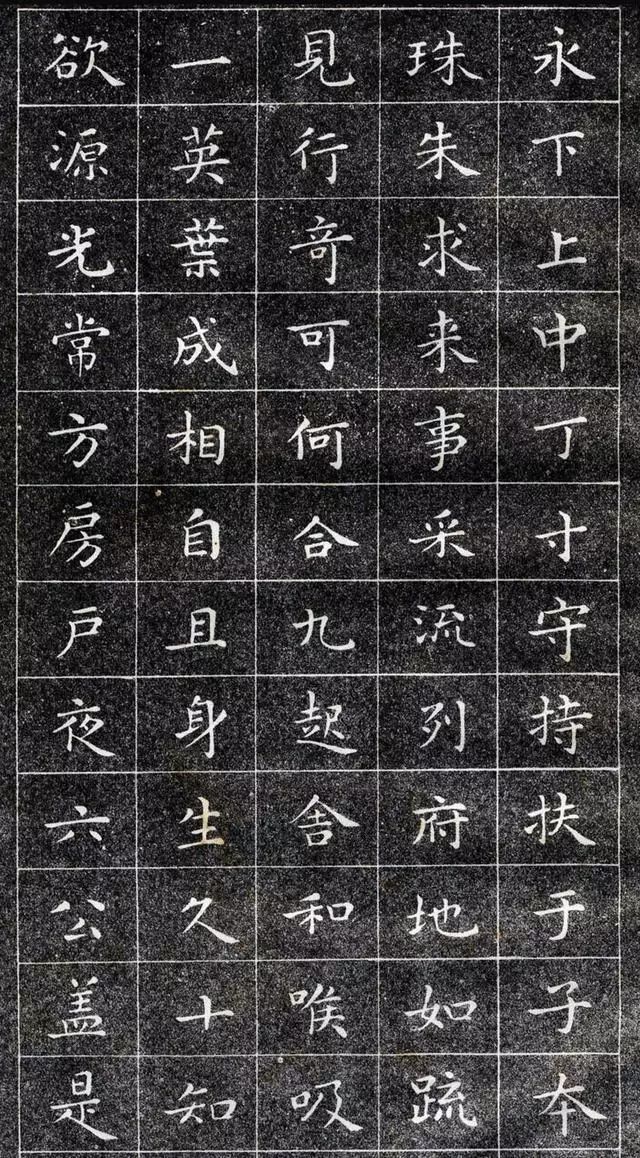 永下上中丁寸守持扶于子本
珠朱求来事采流列府地如䟽
見行奇可何合九起舎和喉吸
一英葉成相自且身生久十知
欲源光常方房戸夜六公盖是